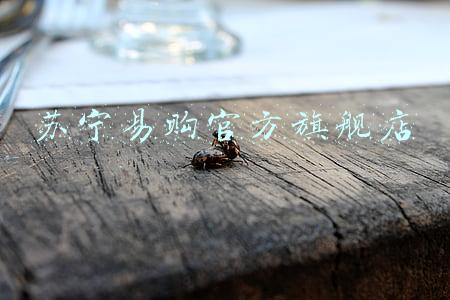 苏宁易购官方旗舰店